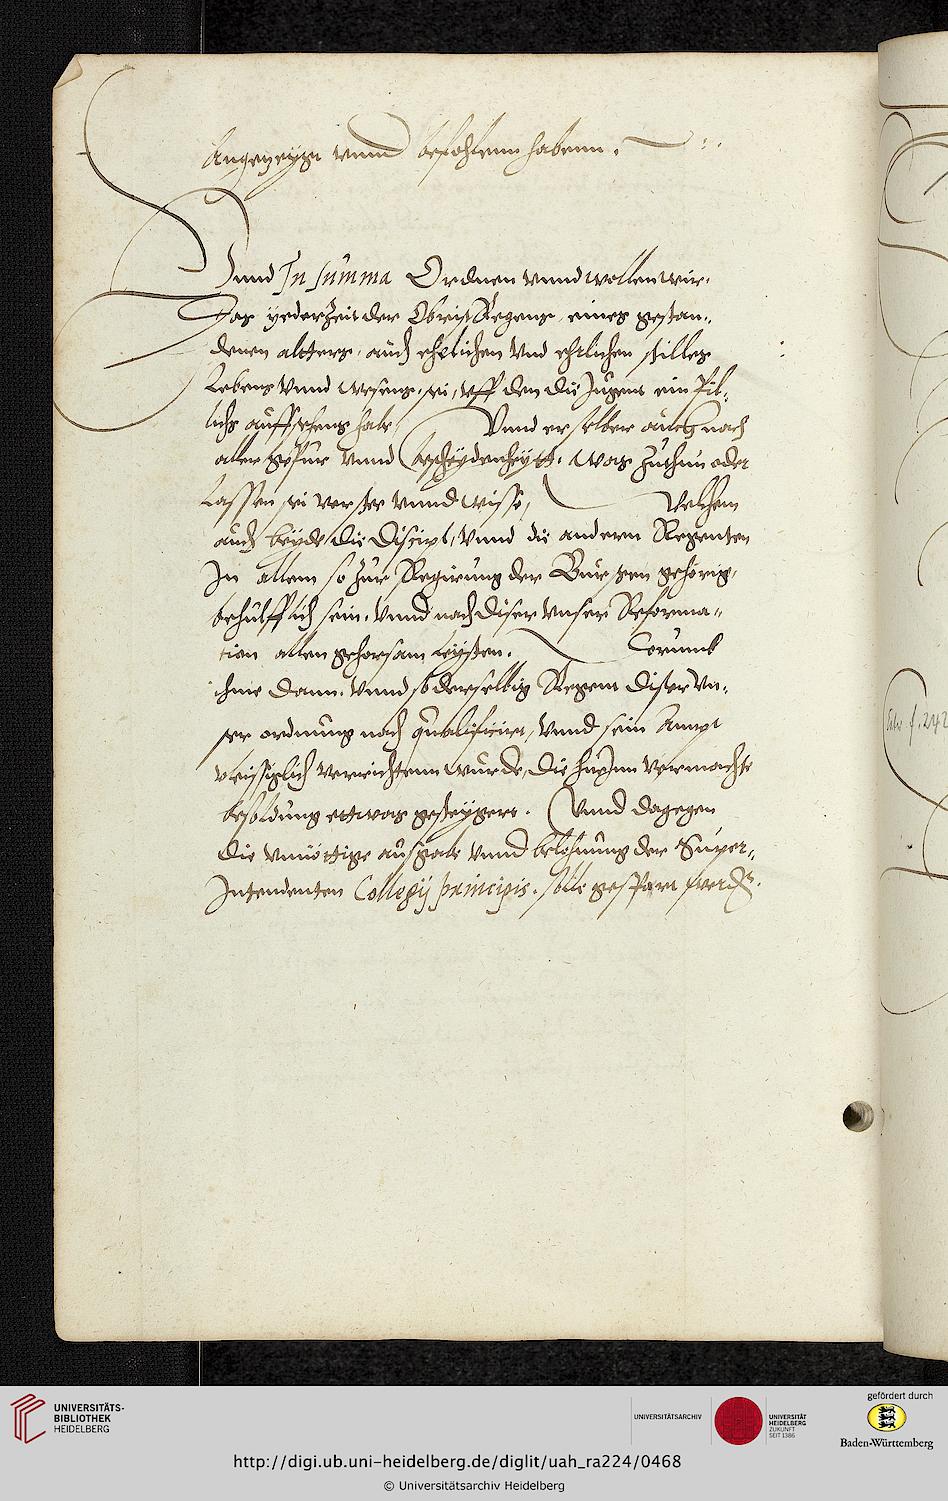 Angezeygt vnnd befohlenn habenn.
Vnnd In summa Ordnen vnnd wollen wir,
Das yederzeit der Obrist Regens, eines gestan-
denen altters, auch ehelichen vnd ehrlichen stilles
Lebens vnnd wesens sei, vff den die Jugent ein Pil-
lichs auffsehens habe, Vnnd er selber auch nach
aller gepür vnnd bescheydenheytt, was zuthun oder
Lassen sei verstee vnnd wisse, Welchem
auch beyde die Discipl, vnnd die andern Regenten
In allem so zur Regierung der Bursen gehörig,
behülfflich sein, vnnd nach diser vnser Reforma-
tion allen gehorsam leysten. Corumb
ihme dann, vnnd so derselbig Regent diser vn-
ser ordnung nach qualificirt, vnnd sein Ampt
vleissiglich verrichtenn wurde, die hieuor vermachte
besoldung ettwas gesteygert. Vnnd dagegen
die vnnöttige ausgab vnnd belohnung der Super-
Intendenten Collegij principis, solle gespart werden.
UNIVERSITÄTS-
BIBLIOTHEK
HEIDELBERG
UNIVERSITÄTSARCHIV
UNIVERSITÄT
HEIDELBERG
ZUKUNFT
SEIT 1386
gefördert durch
Baden-Württemberg
http://digi.ub.uni-heidelberg.de/diglit/uah_ra224/0468
© Universitätsarchiv Heidelberg